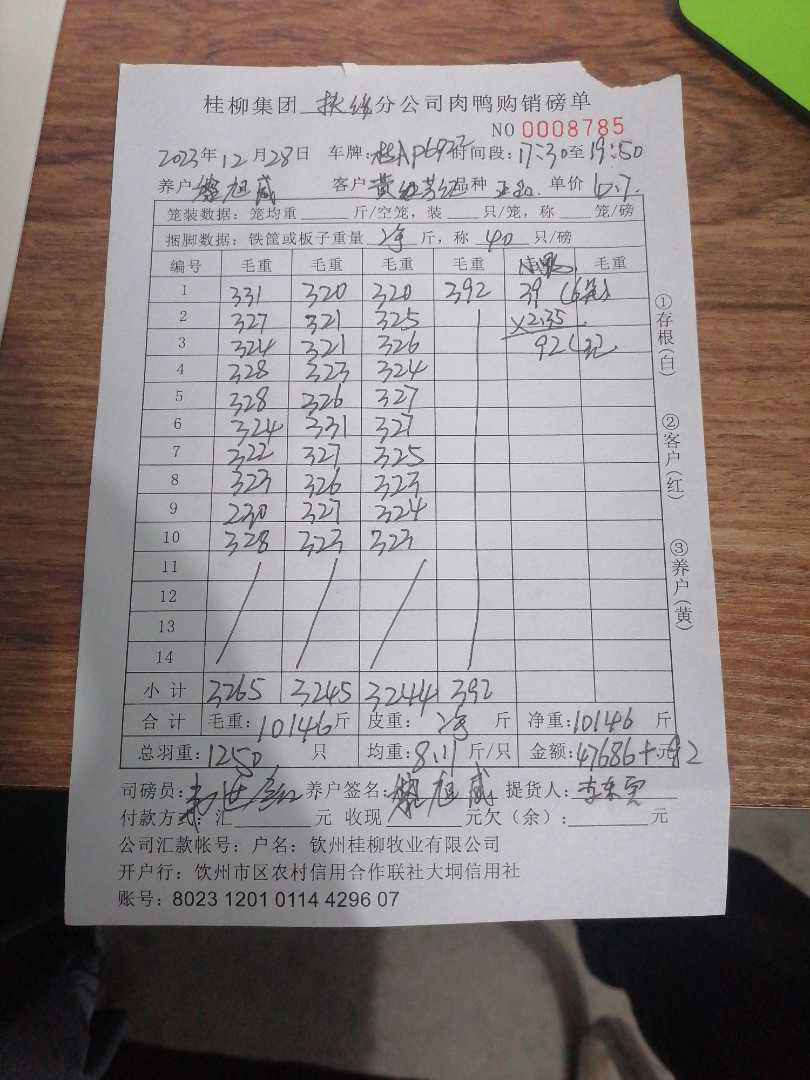 桂柳集团 扶绥 分公司肉鸭购销磅单
NO 0008785
2023年12月28日 车牌: 时间段:17:30至19:50
养户 旭威 客户 黄 品种 单价
笼装数据:笼均重 斤/空笼,装 只/笼,称 笼/磅
捆脚数据:铁筐或板子重量 净 斤,称 40 只/磅
编号 毛重 毛重 毛重 毛重 毛重
1 331 320 320 392 39
2 327 321 325 ×2.35
3 324 321 326 92元
4 328 323 324
5 328 326 327
6 324 331 327
7 322 327 325
8 323 326 323
9 230 327 324
10 328 323 323
11
12
13
14
小计 3265 3245 3244 392
合计 毛重:10146斤 皮重:净 斤 净重:10146 斤
总羽重:1250 只 均重:8.11斤/只 金额:47686+92元
司磅员: 养户签名: 旭威 提货人:李
付款方式:汇 元 收现 元欠(余): 元
公司汇款帐号:户名:钦州桂柳牧业有限公司
开户行:钦州市区农村信用合作联社大垌信用社
账号:8023 1201 0114 4296 07
①存根(白)
②客户(红)
③养户(黄)